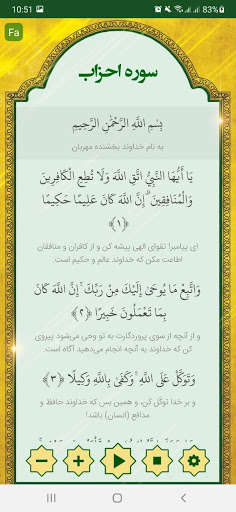 10:51
83%
Fa
سوره احزاب
بِسْمِ اللَّهِ الرَّحْمَٰنِ الرَّحِيمِ
به نام خداوند بخشنده مهربان
يَا أَيُّهَا النَّبِيُّ اتَّقِ اللَّهَ وَلَا تُطِعِ الْكَافِرِينَ
وَالْمُنَافِقِينَ ۗ إِنَّ اللَّهَ كَانَ عَلِيمًا حَكِيمًا
﴿۱﴾
ای پیامبر! تقوای الهی پیشه کن و از کافران و منافقان
اطاعت مکن که خداوند عالم و حکیم است.
وَاتَّبِعْ مَا يُوحَىٰ إِلَيْكَ مِنْ رَبِّكَ ۚ إِنَّ اللَّهَ كَانَ
بِمَا تَعْمَلُونَ خَبِيرًا ﴿۲﴾
و از آنچه از سوی پروردگارت به تو وحی می‌شود پیروی
کن که خداوند به آنچه انجام می‌دهید آگاه است.
وَتَوَكَّلْ عَلَى اللَّهِ ۚ وَكَفَىٰ بِاللَّهِ وَكِيلًا ﴿۳﴾
و بر خدا توکل کن، و همین بس که خداوند حافظ و
مدافع (انسان) باشد!